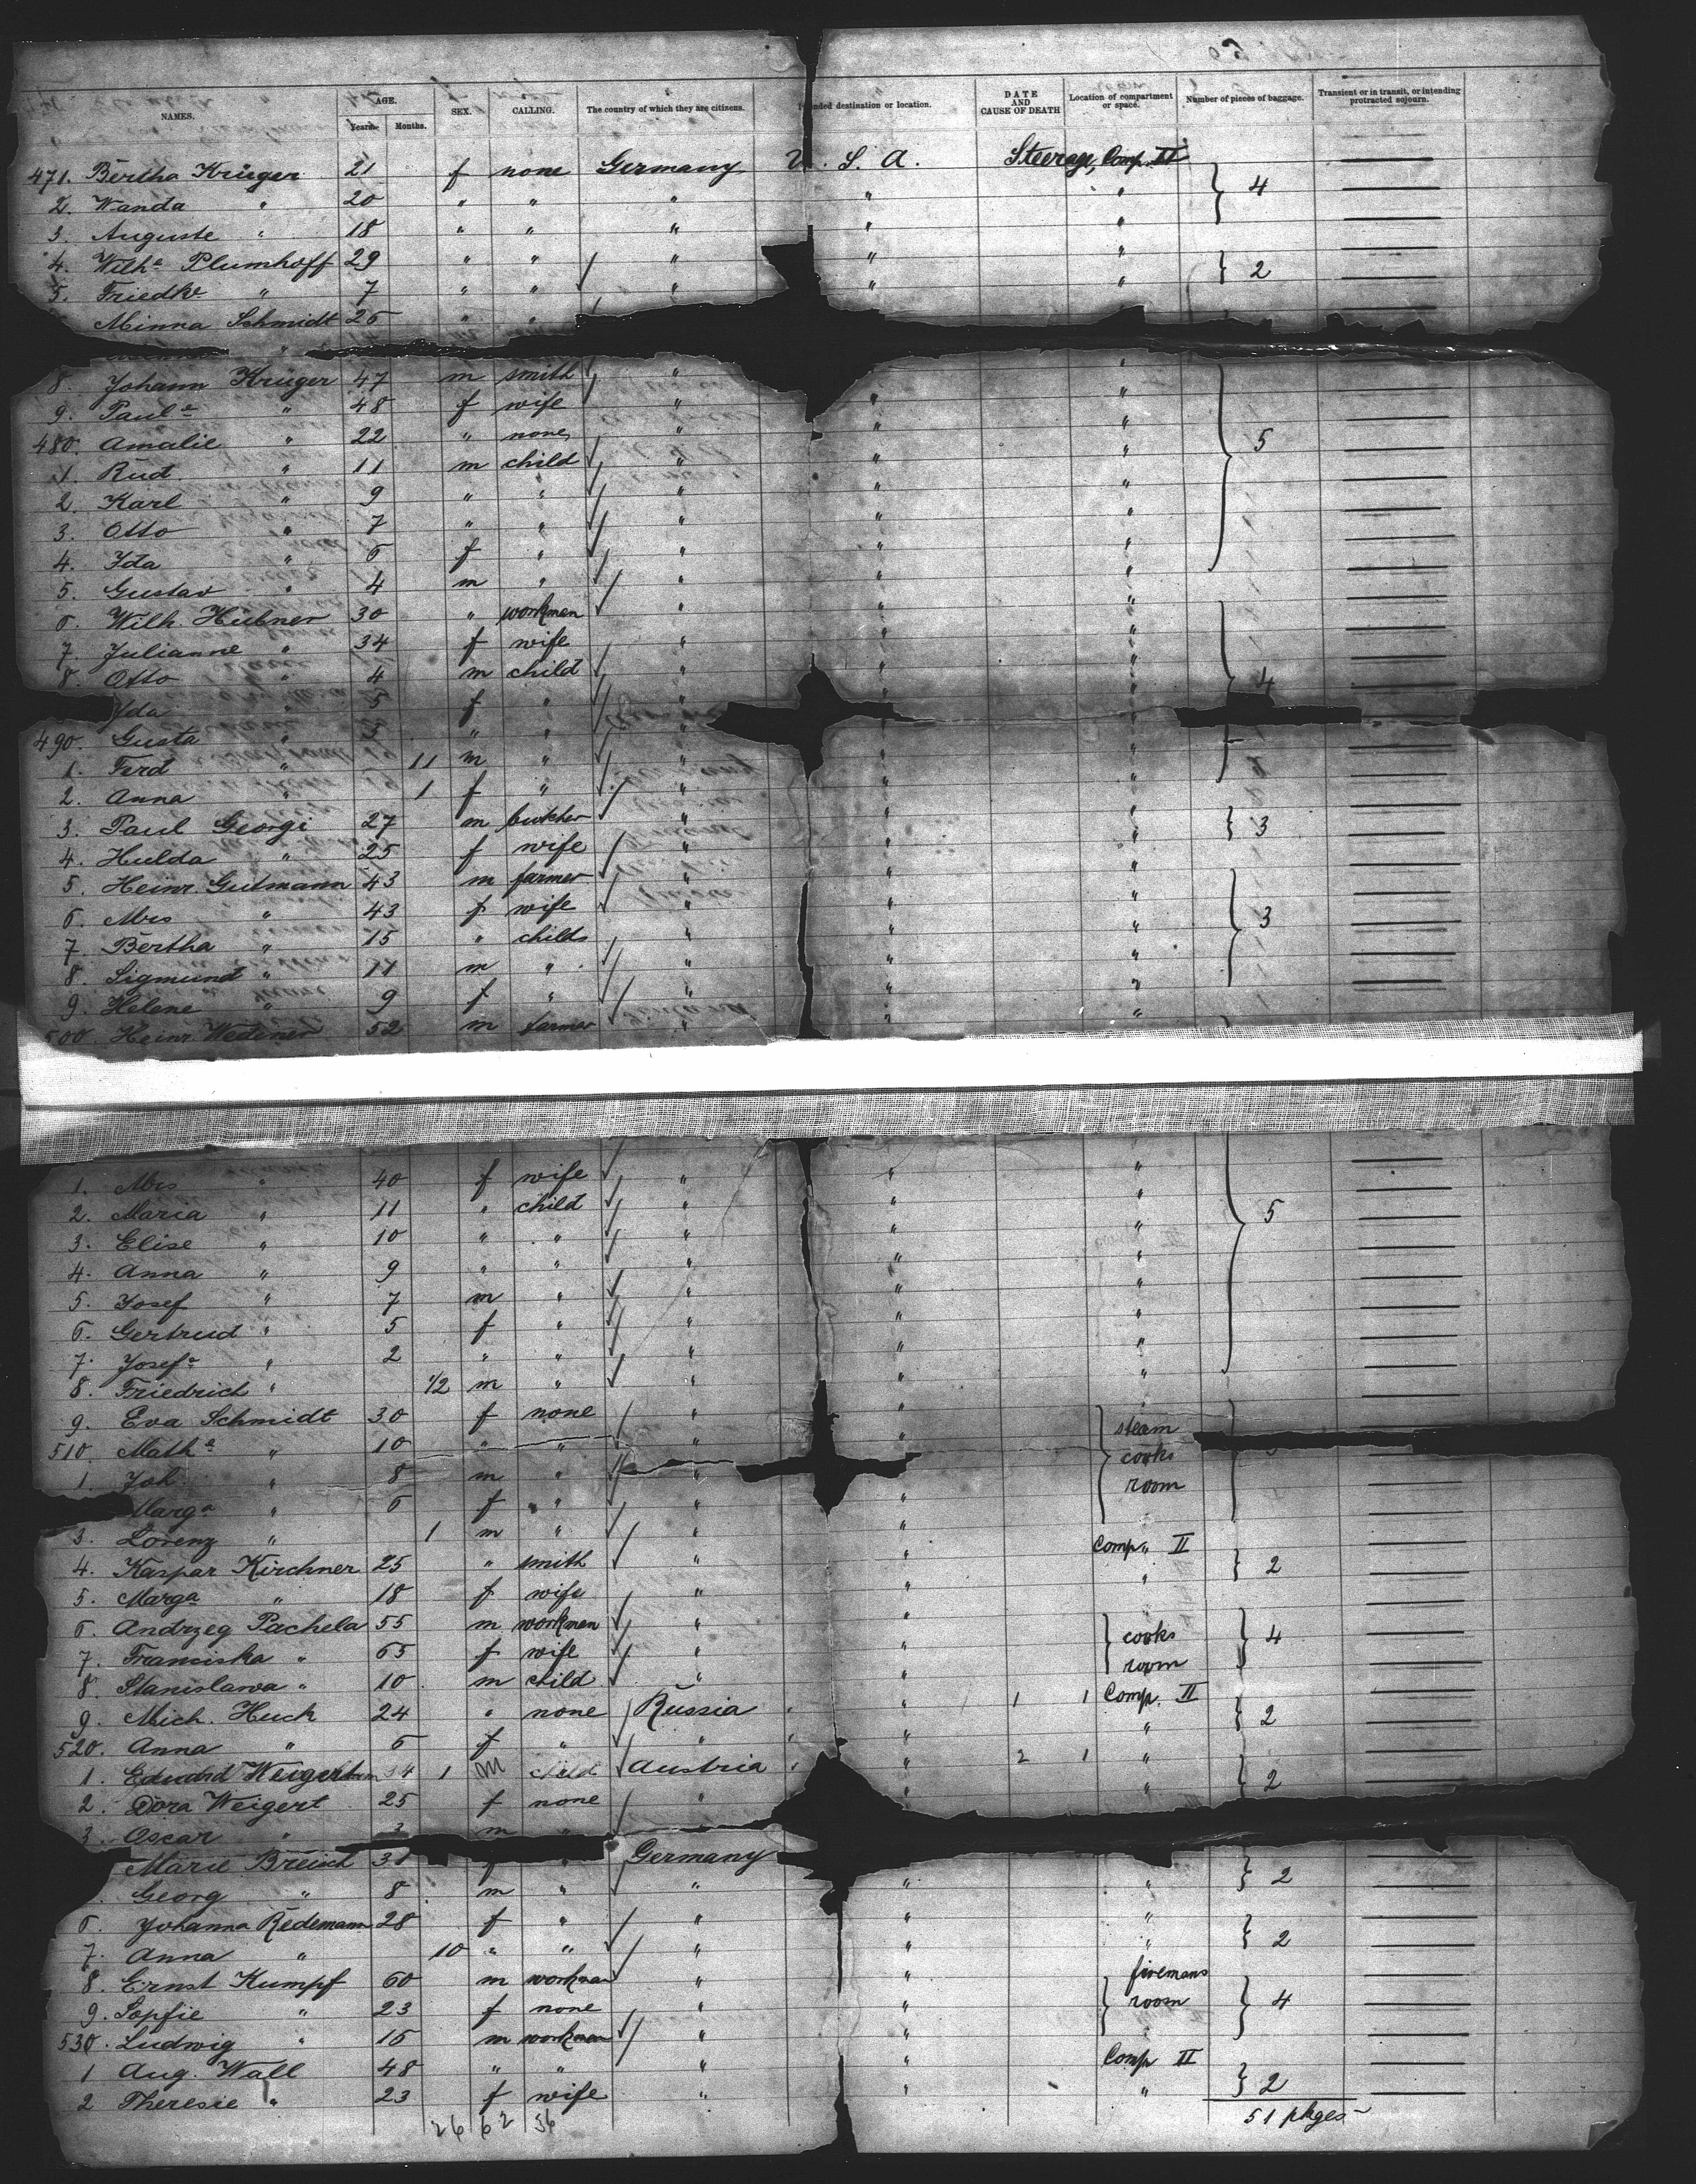 NAMES. AGE. Years. Months. SEX. CALLING. The country of which they are citizens. nded destination or location. DATE AND CAUSE OF DEATH Location of compartment or space. Number of pieces of baggage. Transient or in transit, or intending protracted sojourn.
471. Bertha Krüger 21 f none Germany U. S. A. Steerage, Comp. II
2. Wanda " 20 " " " " " } 4
3. Auguste " 18 " " " " "
4. Wilh.e Plumhoff 29 " " " " " } 2
5. Friedke " 7 " " " " "
Minna Schmidt 26 " "
8. Johann Krüger 47 m smith " "
9. Paul.e " 48 f wife " " "
480. Amalie " 22 " none " " " } 5
1. Rud. " 11 m child " " "
2. Karl " 9 " " " " "
3. Otto " 7 " " " " "
4. Ida " 6 f " " " "
5. Gustav " 4 m " " " "
6. Wilh. Hübner 30 " workman " " "
7. Julianne " 34 f wife " " "
8. Otto " 4 m child " " " } 4
Ida " 5 f " "
490. Gusta " 3 " " " "
1. Ferd " 11 m " " " "
2. Anna " 1 f " " " "
3. Paul Georgi 27 m butcher " " " } 3
4. Hulda " 25 f wife " " "
5. Heinr. Gutmann 43 m farmer " " "
6. Mrs " 43 f wife " " " } 3
7. Bertha " 15 " childs " " "
8. Sigmund " 11 m " " " "
9. Helene " 9 f " " " "
500. Heinr. Wedener 52 m farmer " " "
1. Mrs " 40 f wife " " "
2. Maria " 11 " child " " " } 5
3. Elise " 10 " " " " "
4. Anna " 9 " " " " "
5. Josef " 7 m " " " "
6. Gertrud " 5 f " " " "
7. Josef.a " 2 " " " " "
8. Friedrich " 1/2 m " " " "
9. Eva Schmidt 30 f none " " steam
510. Math.e " 10 " " " " cooks
1. Joh. " 8 m " " room
Marg.a " 6 f " " "
3. Lorenz " 1 m " " "
4. Kaspar Kirchner 25 " smith " " Comp. II } 2
5. Marg.a " 18 f wife " " "
6. Andrzeg Pachela 55 m workman " "
7. Franciska " 65 f wife " " cooks } 4
8. Stanislawa " 10 m child " " room
9. Mich. Huck 24 " none Russia " 1 1 Comp. II } 2
520. Anna " 6 f " " " "
1. Eduard Weigert 1 M child Austria " 2 1 " } 2
2. Dora Weigert 25 f none " " "
3. Oscar " 3 m "
Marie Breisch 31 f " Germany } 2
Georg " 8 m " " " "
6. Johanna Redemann 28 f " " " " } 2
7. Anna " 10 " " " " "
8. Ernst Kumpf 60 m workman " " firemans
9. Sopfie " 23 f none " " room } 4
530. Ludwig " 16 m workman " "
1 Aug. Wall 48 " " " " Comp II } 2
2 Theresie " 23 f wife " " "
26 62 56 51 pkges